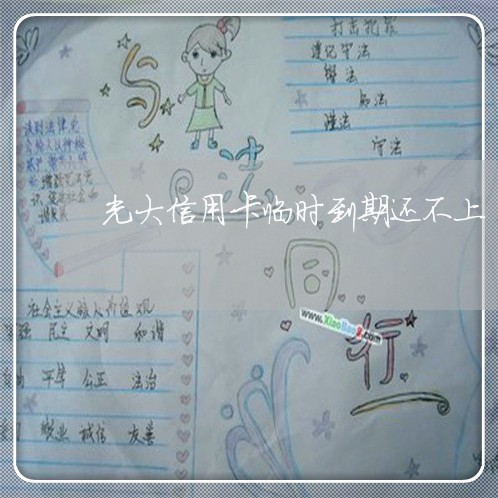 打击犯罪
遵纪守法
学法
知法
懂法
守法
与
法
同
行
光大信用卡临时到期还不上
社会主义核心价值观
富强 民主 文明 和谐
平等 公正 法治
敬业 诚信 友善
www.XiaoBao8.com